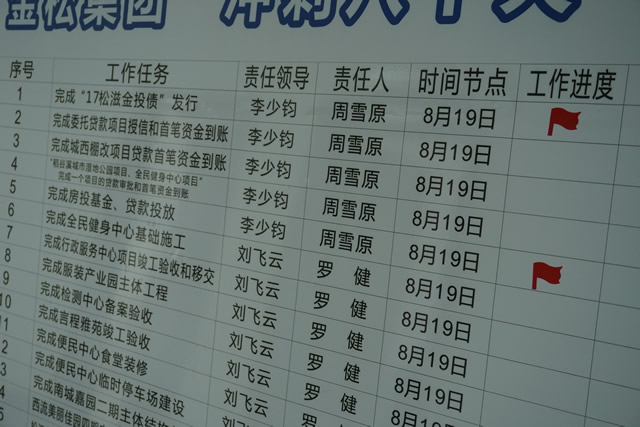 金松集团 冲刺
序号 工作任务 责任领导 责任人 时间节点 工作进度
1 完成“17松滋金投债”发行 李少钧 周雪原 8月19日
2 完成委托贷款项目授信和首笔资金到账 李少钧 周雪原 8月19日
3 完成城西棚改项目贷款首笔资金到账 李少钧 周雪原 8月19日
4 “稻谷溪城市湿地公园项目、全民健身中心项目”
完成一个项目的贷款审批和首笔资金到账 李少钧 周雪原 8月19日
5 完成房投基金、贷款投放 李少钧 周雪原 8月19日
6 完成全民健身中心基础施工 刘飞云 罗 健 8月19日
7 完成行政服务中心项目竣工验收和移交 刘飞云 罗 健 8月19日
8 完成服装产业园主体工程 刘飞云 罗 健 8月19日
9 完成检测中心备案验收 刘飞云 罗 健 8月19日
10 完成言程雅苑竣工验收 刘飞云 罗 健 8月19日
11 完成便民中心食堂装修 刘飞云
完成便民中心临时停车场建设
完成南城嘉园二期主体结构
西流美丽佳园四期